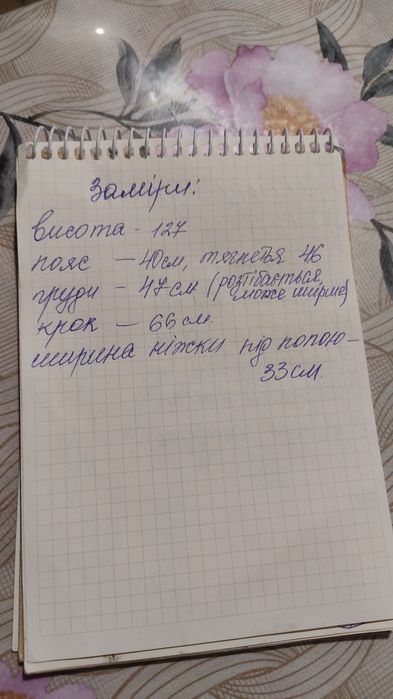 Заміри:
висота - 127
пояс — 40см, тягнеться 46
груди - 47см (розтібається,
може ширше)
крок — 66 см.
ширина ніжки під попою -
33см.